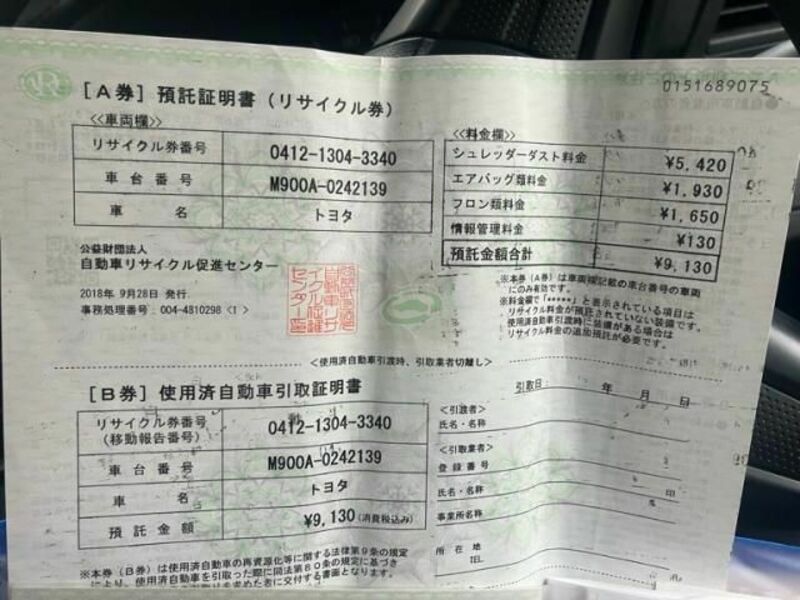 0151689075
[A券] 預託証明書 (リサイクル券)
<<車両欄>>
リサイクル券番号 0412-1304-3340
車台番号 M900A-0242139
車名 トヨタ
<<料金欄>>
シュレッダーダスト料金 ¥5,420
エアバッグ類料金 ¥1,930
フロン類料金 ¥1,650
情報管理料金 ¥130
預託金額合計 ¥9,130
公益財団法人
自動車リサイクル促進センター
2018年 9月28日 発行
事務処理番号:004-4810298 <1>
※本券(A券)は車両欄記載の車台番号の車両
にのみ有効です。
※料金欄で「*****」と表示されている項目は
リサイクル料金が預託されていない装備です。
使用済自動車引渡時に装備がある場合は
リサイクル料金の追加預託が必要です。
<使用済自動車引渡時、引取業者切離し>
[B券] 使用済自動車引取証明書
リサイクル券番号
(移動報告番号) 0412-1304-3340
車台番号 M900A-0242139
車名 トヨタ
預託金額 ¥9,130(消費税込み)
引取日: 年 月 日
<引渡者>
氏名・名称
<引取業者>
登録番号
氏名・名称 印
事業所名称
所在地
TEL
※本券(B券)は使用済自動車の再資源化等に関する法律第9条の規定
により、使用済自動車を引取った際に同法第80条の規定に基づき
引取りを求めた者に交付する書面となります。